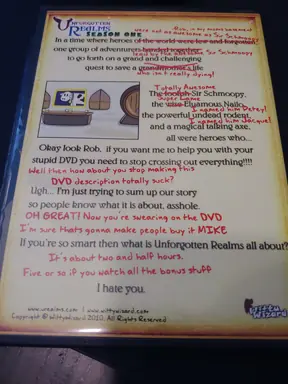 Unforgotten
Realms SEASON ONE
In a time where heroes of the world were lost and forgotten
were not as awesome as Sir Schmoopy
one group of adventurers banded together
lead by the awesome Sir Schmoopy
to go forth on a grand and challenging
quest to save a grandmother's life
who isn't really dying!
Totally Awesome
The foolish Sir Schmoopy,
Super Lame
the wise Eluamous Nailo,
I named him Petey!
the powerful undead rodent,
and a magical talking axe,
I named him Jacque!
all were heroes who...
Okay look Rob, if you want me to help you with your
stupid DVD you need to stop crossing out everything!!!!
Well then how about you stop making this
DVD description totally suck?
Ugh... I'm just trying to sum up our story
so people know what it is about, asshole.
OH GREAT! Now you're swearing on the DVD
I'm sure thats gonna make people buy it MIKE
If you're so smart then what is Unforgotten Realms all about?
It's about two and half hours.
Five or so if you watch all the bonus stuff
I hate you.
www.urealms.com | www.wittywizard.com
Copyright © wittywizard 2010. All Rights Reserved
Witty
Wizard